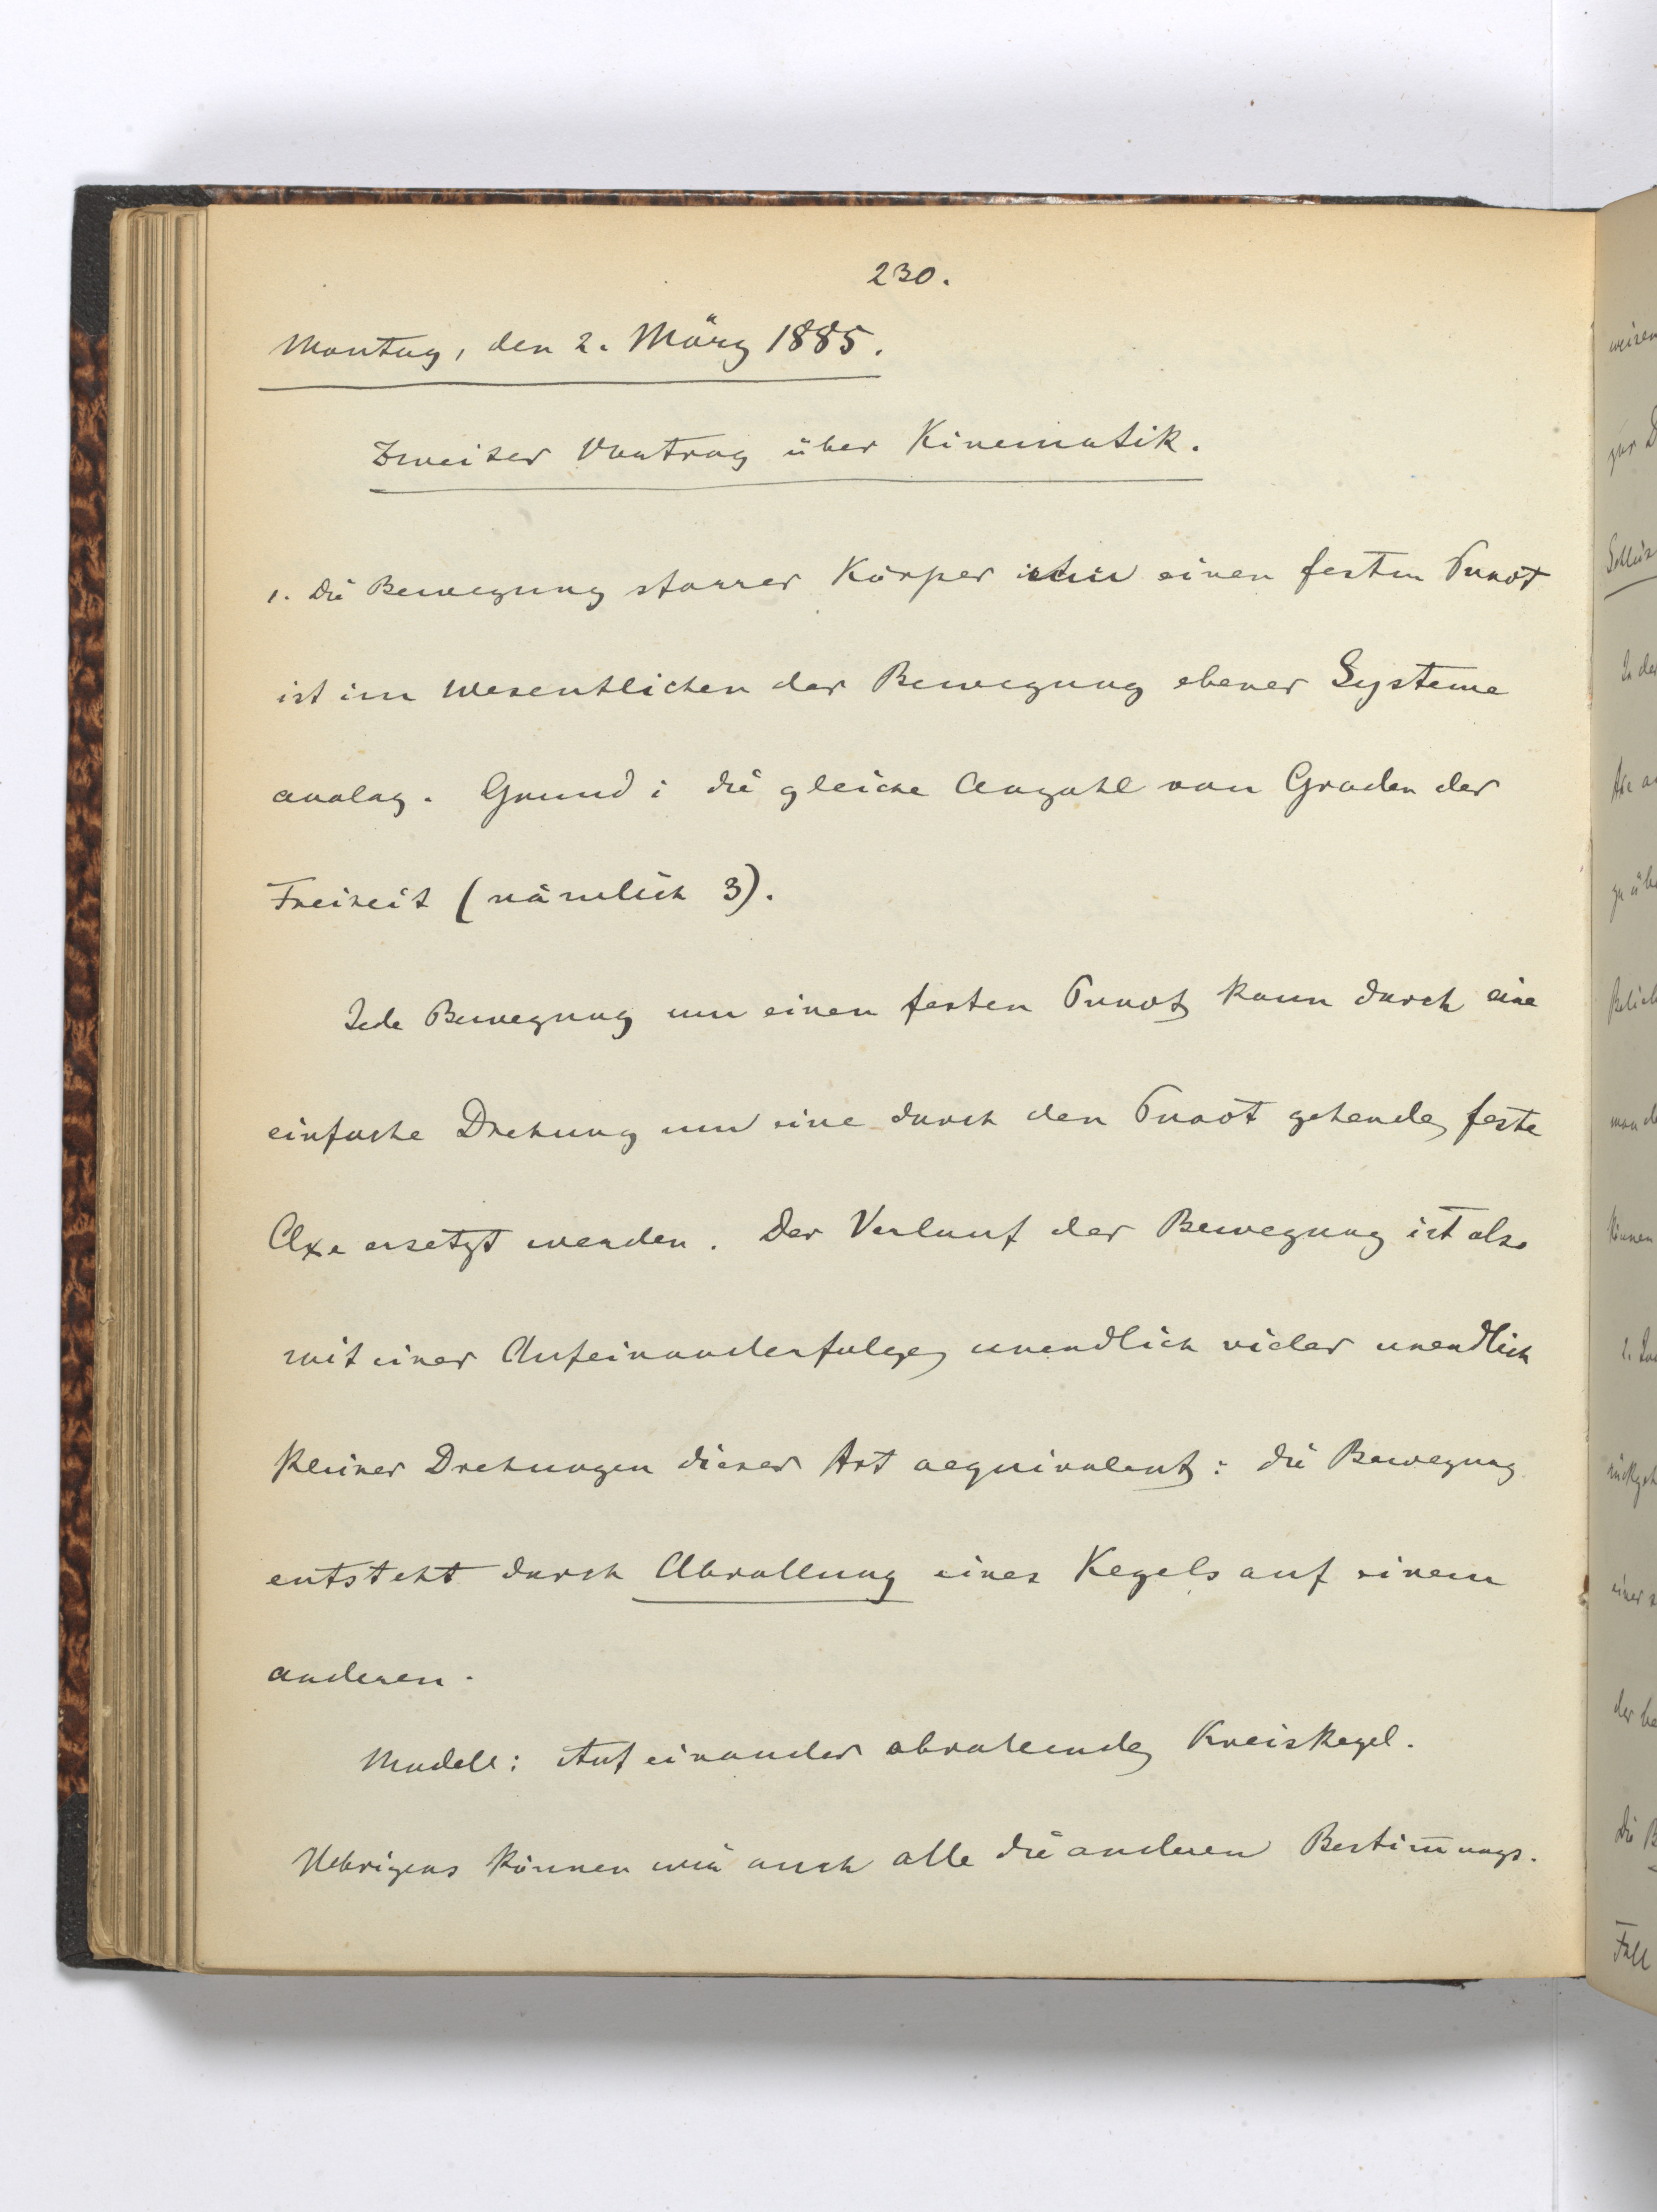 230.
Montag, den 2. März 1885.
Zweiter Vortrag über Kinematik.
1. Die Bewegung starrer Körper um einen festen Punct
ist im Wesentlichen der Bewegung ebener Systeme
analog. Grund: die gleiche Anzahl von Graden der
Freiheit (nämlich 3).
Jede Bewegung um einen festen Punct kann durch eine
einfache Drehung um eine durch den Punct gehende feste
Axe ersetzt werden. Der Verlauf der Bewegung ist also
mit einer Aufeinanderfolge unendlich vieler unendlich
kleiner Drehungen dieser Art aequivalent: die Bewegung
entsteht durch Abrollung eines Kegels auf einem
anderen.
Modell: Auf einander abrollende Kreiskegel.
Uebrigens können wir auch alle die anderen Bestim̅ungs-